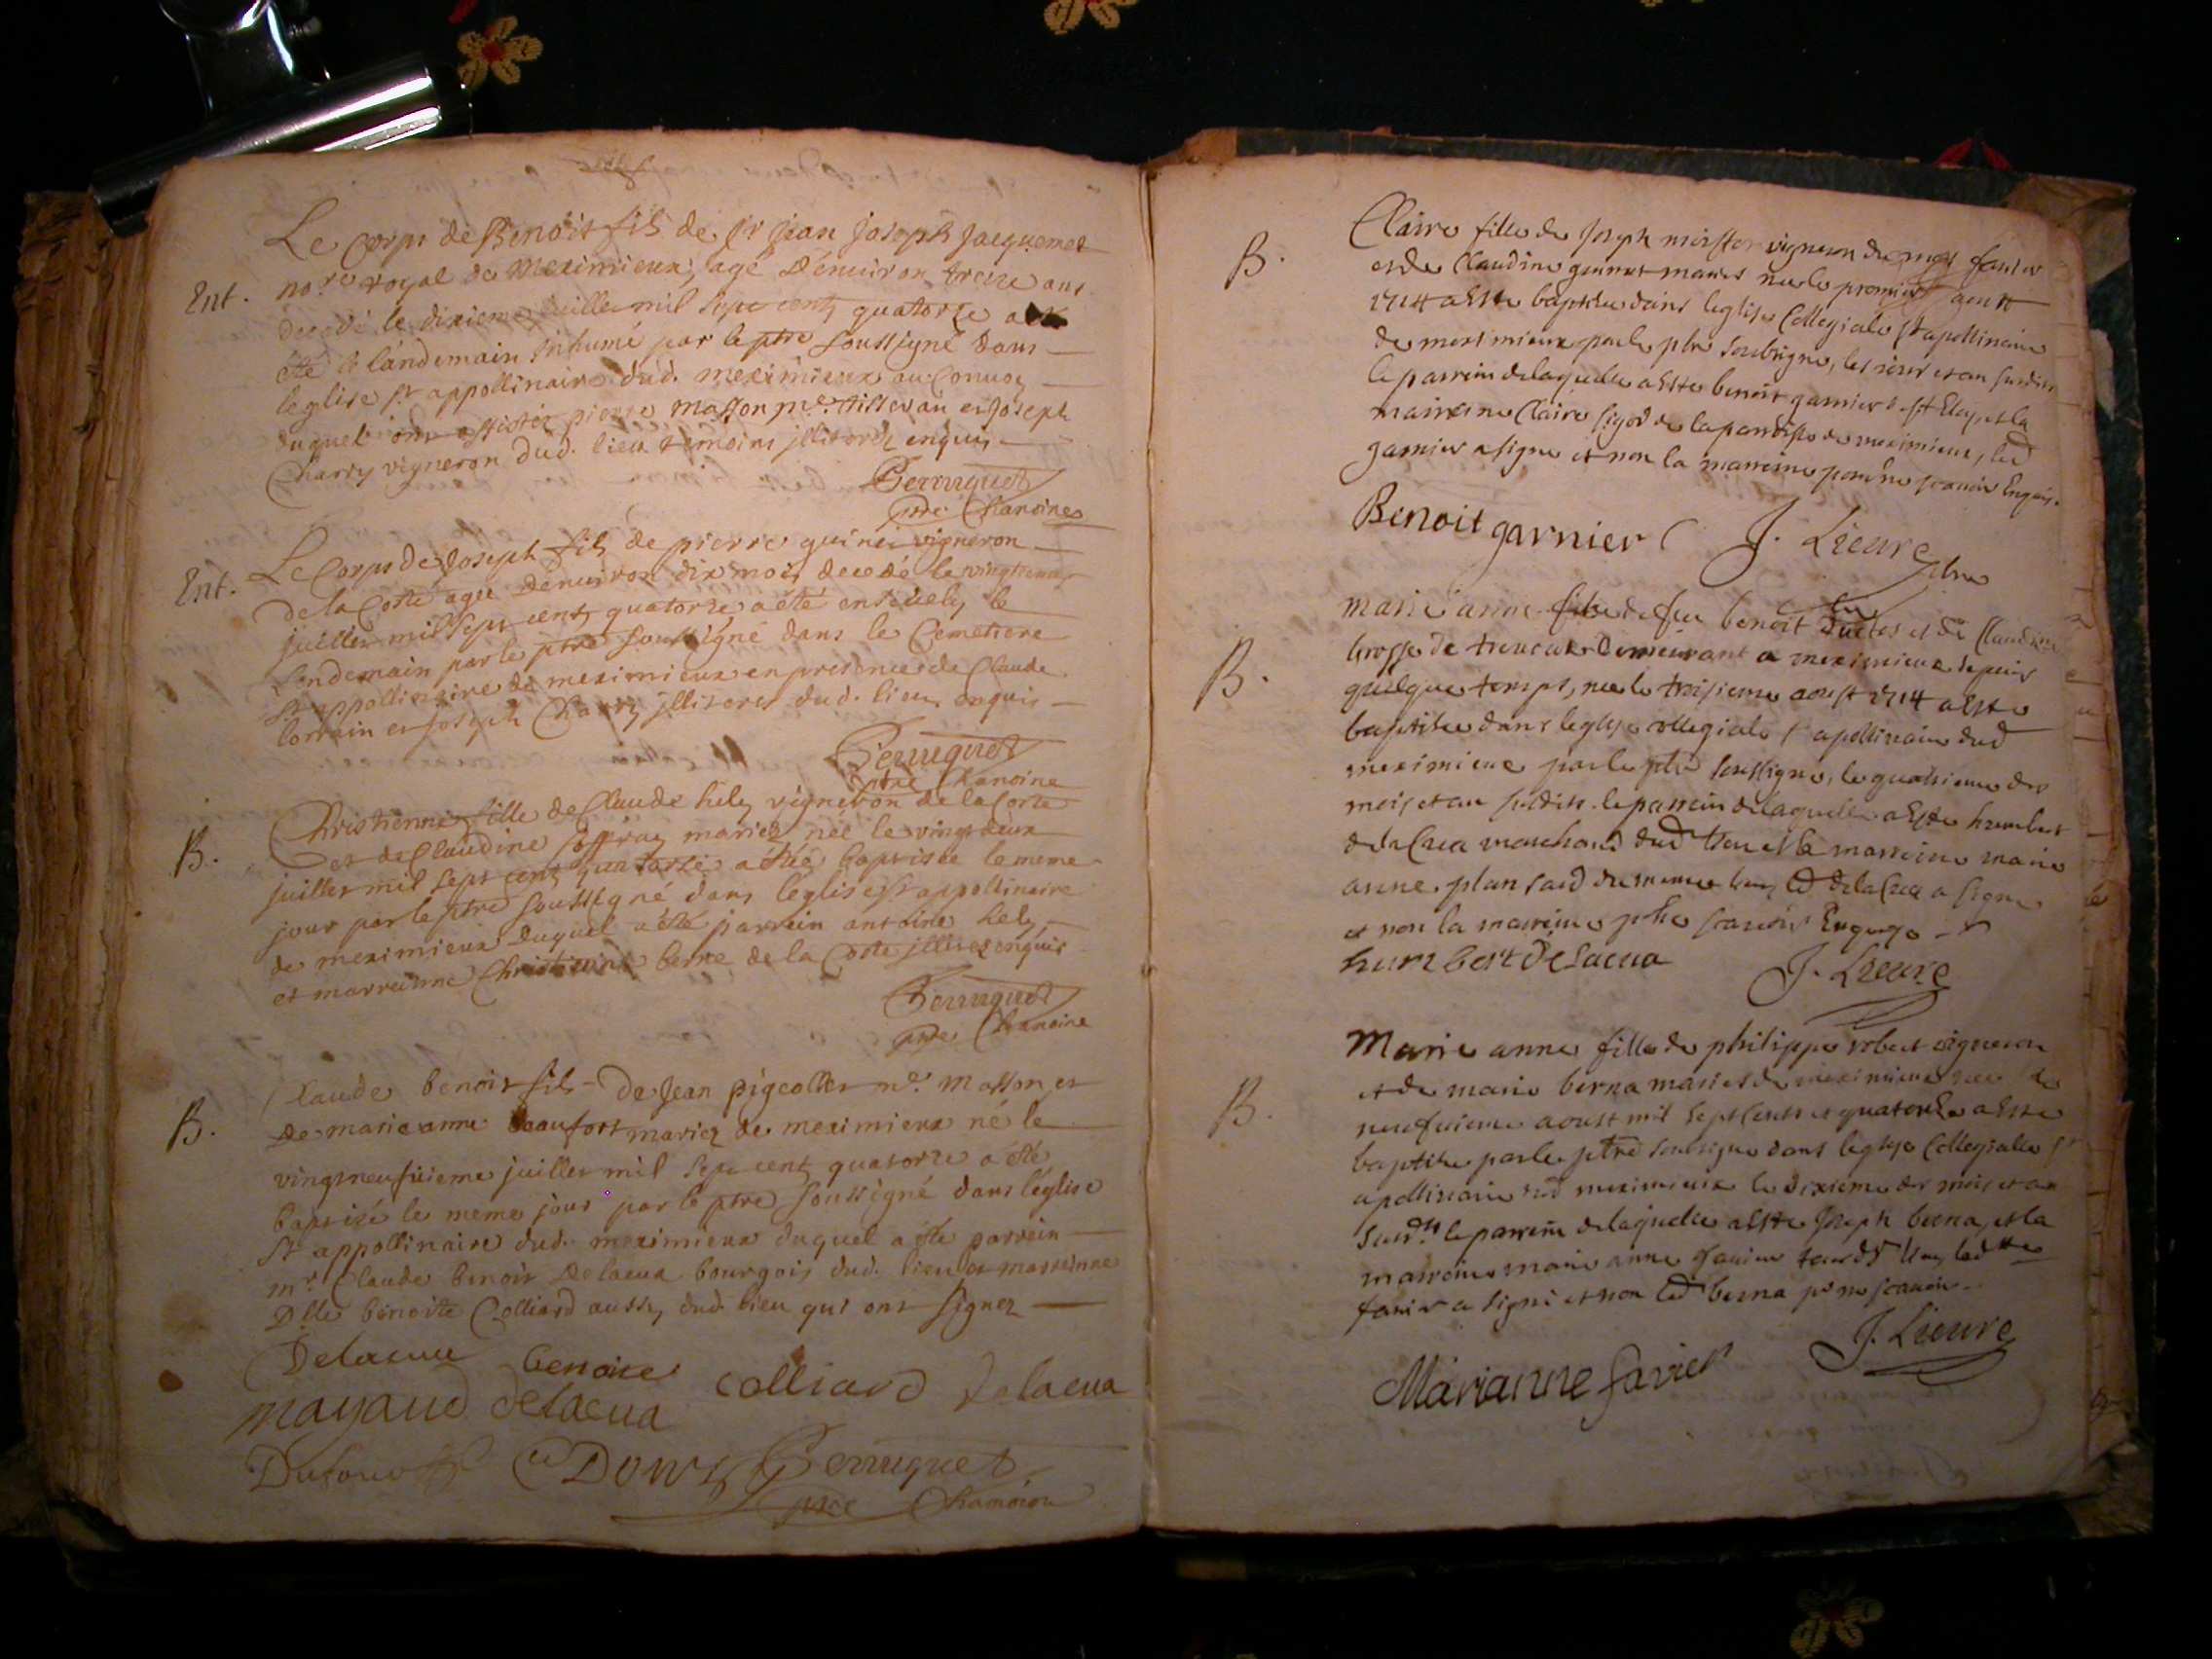 Ent.
Le Corps de Benoist fils de Sr Jean Joseph Jacquemet
no.re royal de Meximieux, agé Denuiron treize ans
decedé le dixieme juillet mil sept cent quatorze a
été le landemain inhumé par le ptre soussigné dans
leglise St appollinaire dud. meximieux au Conuoy
duquel ont assistéz pierre masson me. tisseran et Joseph
Charry vigneron dud. lieu temoins jllitorez enquis
Perruquet
ptre Chanoine
Ent.
Le Corps de Joseph fils de pierre guinet vigneron
de la Coste agée denuiron dix mois decedé le
juillet mil sept cent quatorze a été enseuely le
Landemain par le ptre soussigné dans le Cemetiere
St appollinaire de meximieux en presence de Claude
lorrain et Joseph Charry jllitores dud. lieu enquis
Perruquet
ptre Chanoine
B.
Christienne fille de Claude hely vigneron de la Coste
et de Claudine mariez née le vingt deux
juillet mil sept cent quatorze a été baptisée le meme
jour par le ptre soussigné dans l'église St appollinaire
de meximieux duquel a été parrein antoine hely
et marreinne Christienne berne de la Coste jlliterez enquis
Perruquet
ptre Chanoine
B.
Claude benoist fils de Jean pigeollet me. masson et
De marie anne beaufort mariez de meximieux né le
vingtneufuieme juillet mil sept cent quatorze a été
baptisé le meme jour par le ptre soussigné dans l'église
St appollinaire dud. meximieux duquel a été parrein
mr. Claude benoist Delacua bourgois dud. lieu et marreinne
Dlle benoitte Colliard aussy dud. lieu qui ont signez
Delacua benoite colliard Delacua
mayaud delacua
Dufour Perruquet
ptre Chanoine
B.
Claire fille de Joseph vigneron du
et de Claudine mariés née le premier aoust
1714 a esté baptisée dans leglise Collegiale St apollinaire
de meximieux par le ptre soubsigne, les jour et an susdits
le parrein delaquelle a este benoit garnier et la
marreine Claire de la parroisse de meximieux, led
garnier a signe et non la marreine pour ne scauoir Enquis.
Benoit garnier J. Lieure
ptre
B.
marie anne fille de feu benoit et de Claudine
brosse de demeurant a meximieux depuis
quelque temps, nee le troisieme aoust 1714 a este
baptisée dans leglise collegiale St apollinaire dud
meximieux par le ptre soussigne, le quatrieme des
mois et an susdits. le parrein delaquelle a este humbert
delaCua marchand dud lieu et la marreine marie
anne du meme lieu, led delaCua a signe
et non la marreine scauoir Enquise
humbert delacua J. Lieure
B.
Marie anne fille de philippe robert vigneron
et de marie berna mariés de meximieux nee le
neufuieme aoust mil sept cents et quatorze a este
baptisée par le ptre soubsigne dans leglise Collegialle St
apollinaire dud meximieux le dixieme des mois et an
susdts le parrein delaquelle a este Joseph berna, et la
marreine marie anne fauier lieu, ladtte
fauier a signé et non led berna pr ne scauoir.
Marianne favier J. Lieure